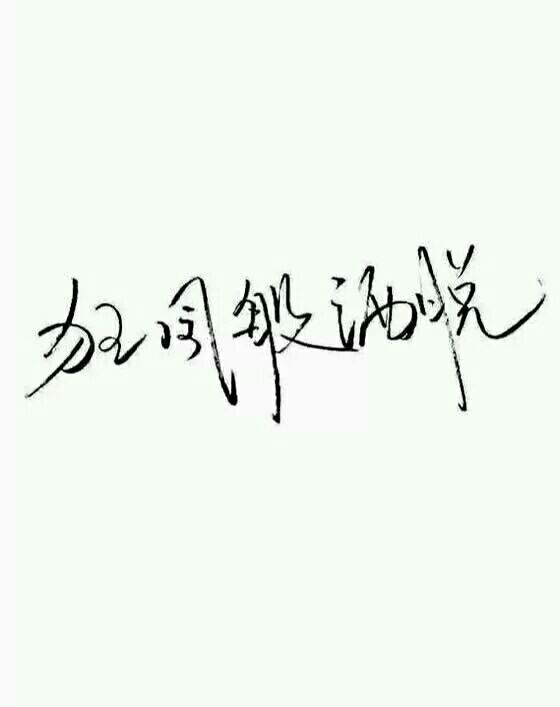 狂风般洒脱